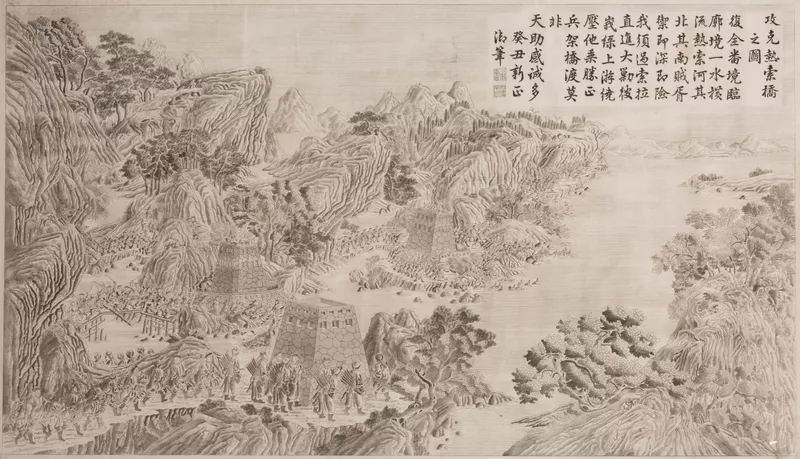 攻克熱索橋
之圖
復全番境臨
廓境一水橫
流熱索河其
北其南賊胥
禦即深即險
我須過索拉
直進大勦彼
峩綠上游繞
壓他乗勝正
兵架橋渡莫
非
天助感誠多
癸丑新正
御筆